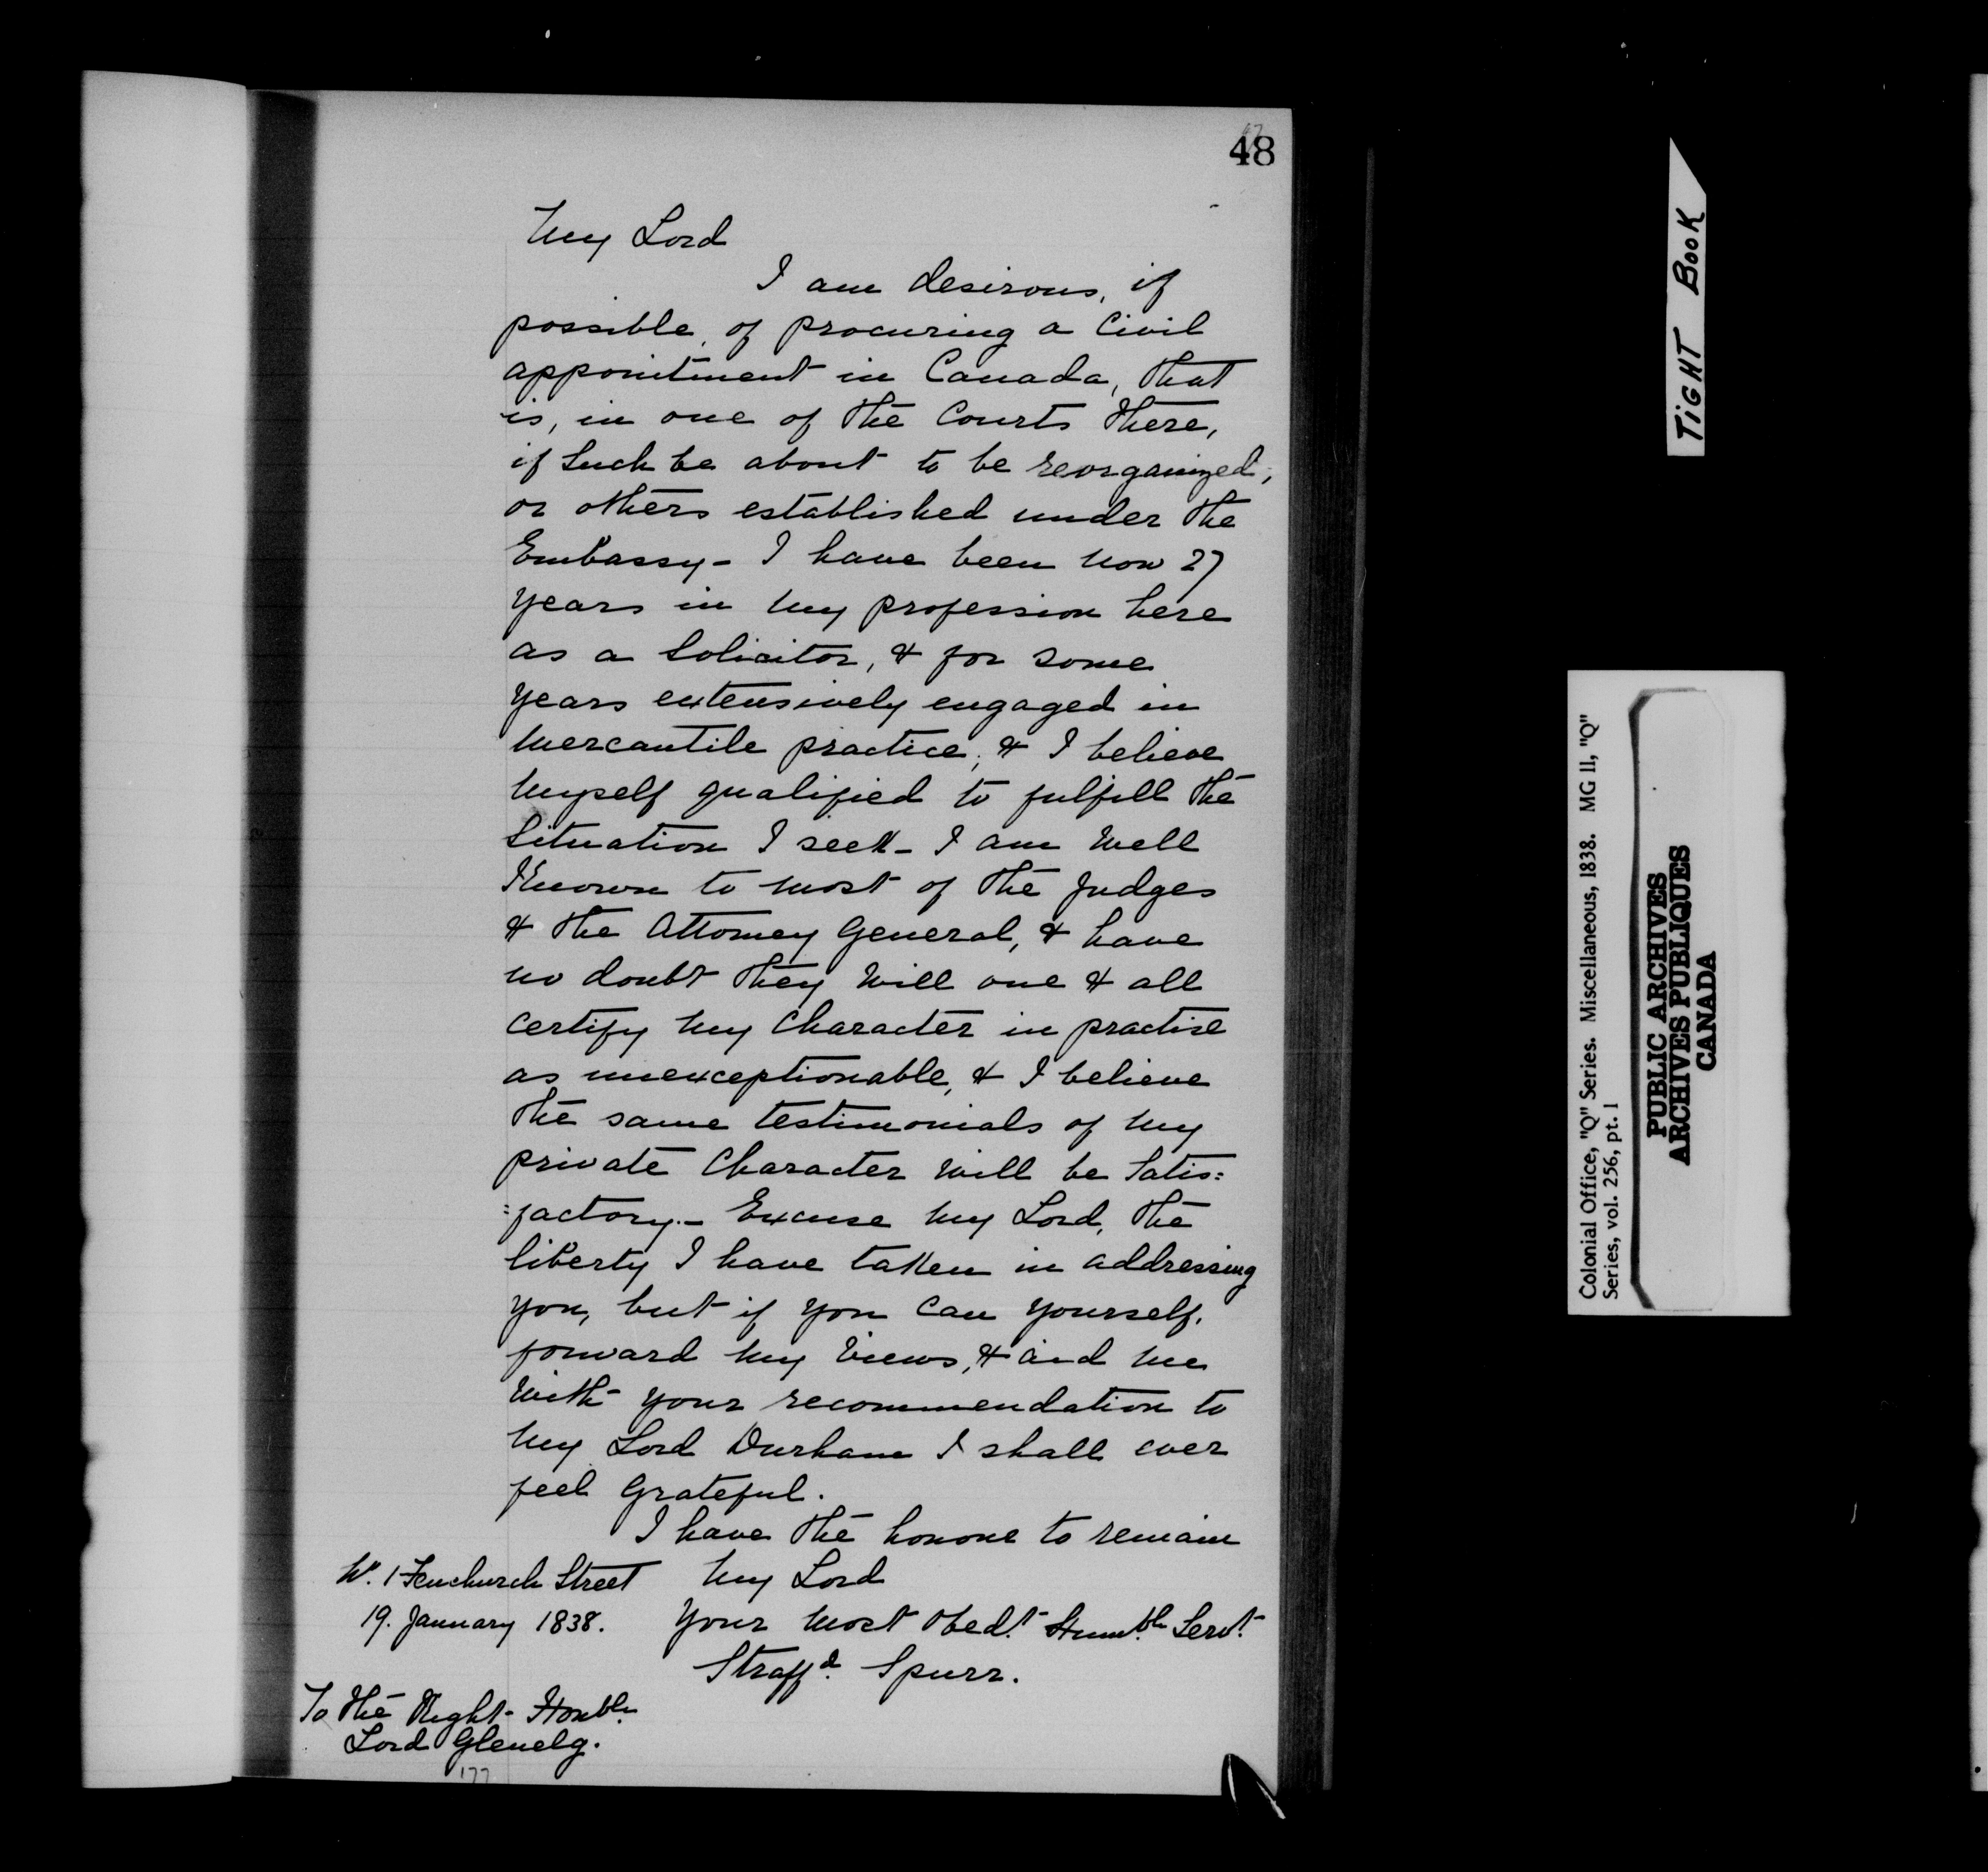 48
My Lord
I am desirous, if
possible, of procuring a Civil
appointment in Canada, that
is, in one of the Courts there,
if such be about to be reorganized,
or others established under the
Embassy - I have been now 27
years in my profession here
as a Solicitor, & for some
years extensively engaged in
Mercantile practice, & I believe
myself qualified to fulfill the
Situation I seek - I am well
Known to most of the Judges
& the Attorney General, & have
no doubt they will one & all
certify my Character in practise
as unexceptionable, & I believe
the same testimonials of my
private Character will be Satis=
=factory. - Excuse my Lord, the
liberty I have taken in addressing
you, but if you can yourself,
forward my views, & aid me
with your recommendation to
my Lord Durham I shall ever
feel Grateful.
I have the honor to remain
My Lord
Your most Obedt. Humble Servt.
Straffd. Spurr.
No. 1 Fenchurch Street
19. January 1838.
To the Right Honble
Lord Glenelg.
177
TIGHT BOOK
Colonial Office, "Q" Series. Miscellaneous, 1838. MG 11, "Q"
Series, vol. 256, pt. 1
PUBLIC ARCHIVES
ARCHIVES PUBLIQUES
CANADA